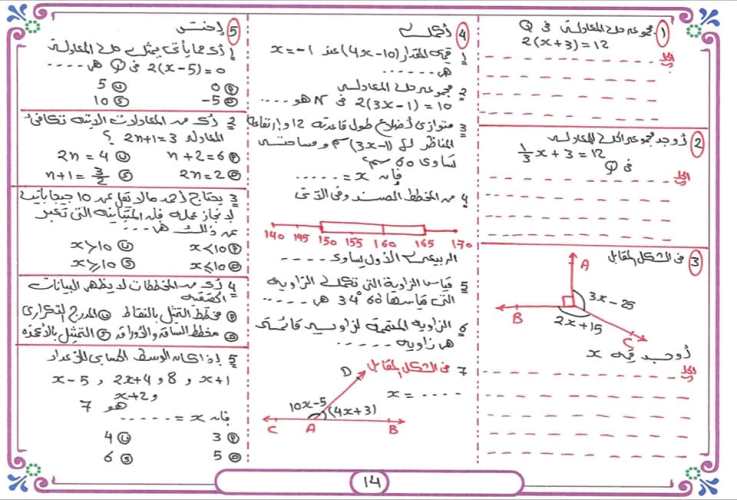 1 مجموعه حل المعادله فى Q
2(x+3)=12
الحل
2 أوجد مجموعه الحل للمعادله
1/3 x + 3 = 12
فى Q
الحل
3 فى الشكل المقابل
A
3x-25
B
2x+15
C
أوجد قيمه x
الحل
4 أكمل
1 قيمه المقدار (4x-10) عند x=-1
هى ....
2 مجموعه حل المعادله
2(3x-1)=10 فى N هو ....
3 متوازى أضلاع طول قاعدته 12 و إرتفاعه
المناظر لها (3x-1) سم و مساحته
تساوى 60 سم²
فإن x = .....
4 من المخطط الصندوقى الآتى
140 195 150 155 160 165 170
الربيعى الأول يساوى ....
5 قياس الزاوية التى تكمل الزاويه
التى قياسها 60° 34 هى ....
6 الزاويه المتممة لزاويه قائمه
هى زاويه .....
7 فى الشكل المقابل
D
x = ....
10x-5
(4x+3)
C A B
5 إختر
1 أى مما يأتى يمثل حل المعادله
2(x-5)=0 فى Q هى ....
0 5
-5 10
2 أى من المعادلات الآتيه تكافئ
المعادله 2n+1=3 ؟
n+2=6 2n=4
2n=2 n+1=3/2
3 يحتاج أحمد مالا يقل عن 10 جيجابايت
لإنجاز عمله فإن المتباينه التى تعبر
عن ذلك هى ....
x<10 x>10
x≤10 x≥10
4 أى من المخططات لا يظهر البيانات
الحقيقه
مخطط التمثيل بالنقاط المدرج التكرارى
مخطط الساق والأوراق التمثيل بالأعمده
5 إذا كان الوسط الحسابى للأعداد
x-5 , 2x+4 , 8 , x+1
, x+2
هو 7
فإن x = ......
3 4
5 6
14